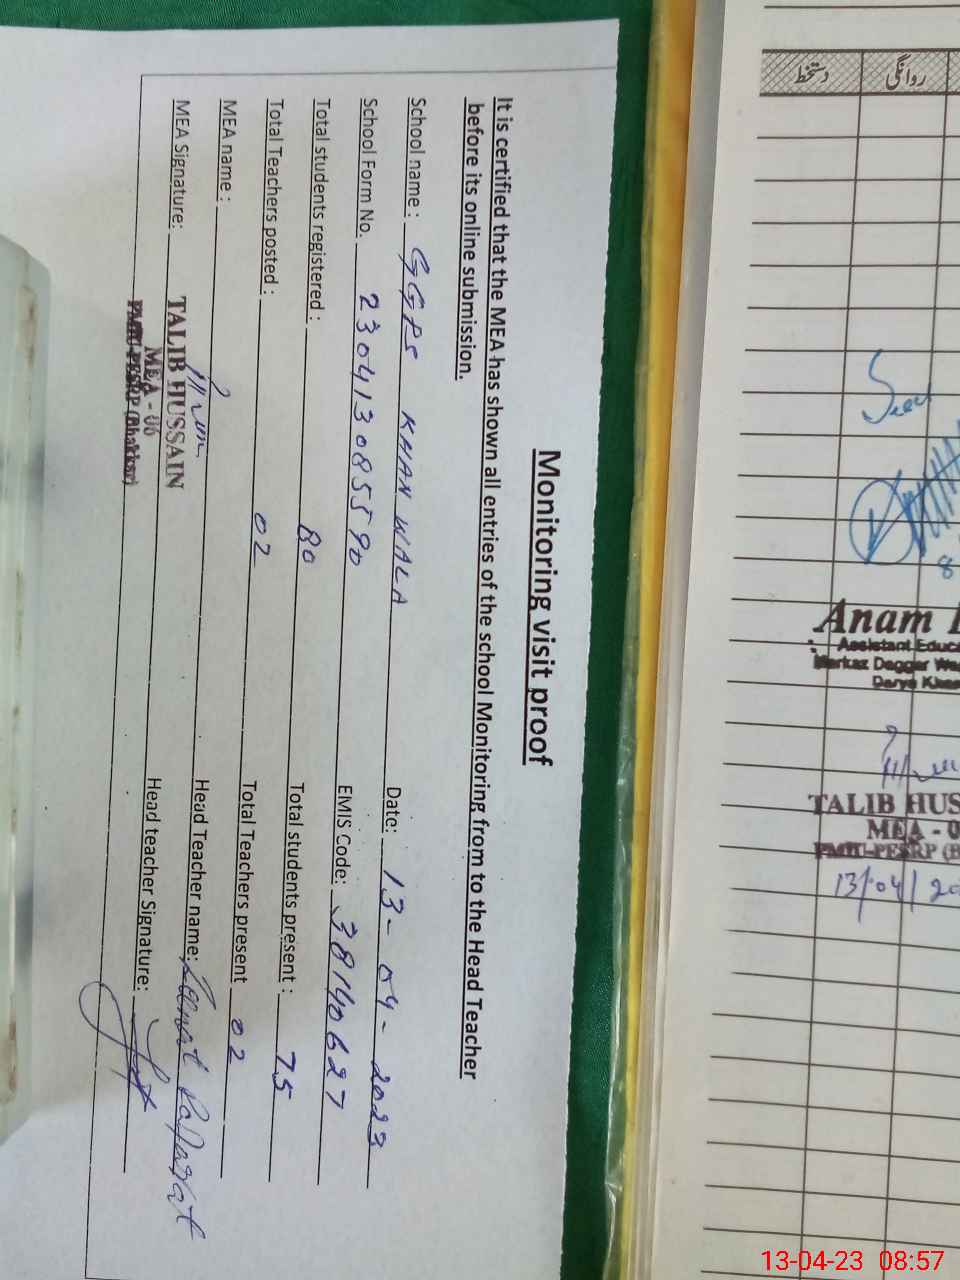 Monitoring visit proof
It is certified that the MEA has shown all entries of the school Monitoring from to the Head Teacher
before its online submission.
School name : GGPS KHAN WALA Date: 13-04-2023
School Form No. 230413085590 EMIS Code: 38140627
Total students registered : 80 Total students present : 75
Total Teachers posted : 02 Total Teachers present 02
MEA name : Head Teacher name:
MEA Signature: Head teacher Signature:
TALIB HUSSAIN
MEA - 06
PMIU-PESRP (Bhakkar)
روانگی دستخط
8
Anam
Assistant Educa
Markaz Daggar Wa
Darya Khan
TALIB HUS
MEA - 0
PMIU-PESRP (B
13/04/20
13-04-23 08:57